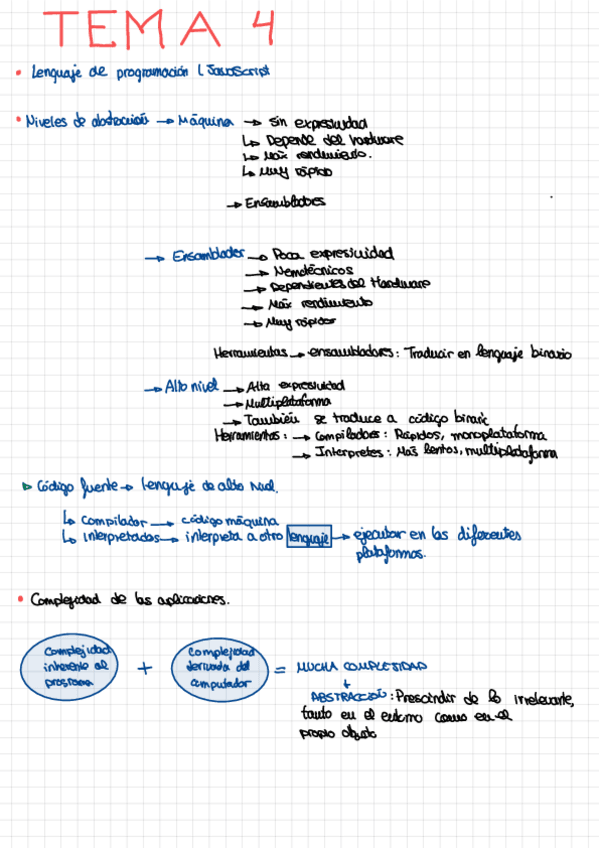 TEMA 4
• Lenguaje de programación | JavaScript
• Niveles de abstracción → Máquina → Sin expresividad
↳ Depende del hardware
↳ Máx rendimiento.
↳ Muy rápido
→ Ensambladores
→ Ensamblador → Poca expresividad
→ Nemotécnicos
→ Dependientes del Hardware
→ Máx rendimiento
→ Muy rápidos
Herramientas → ensambladores: Traducir en lenguaje binario
→ Alto nivel → Alta expresividad
→ Multiplataforma
→ También se traduce a código binario
Herramientas: → Compiladores: Rápidos, monoplataforma
→ Interpretes: Más lentos, multiplataforma
▷ Código fuente → lenguaje de alto nivel.
↳ Compilador → código máquina
↳ Interpretados → interpreta a otro lenguaje → ejecutar en las diferentes
plataformas.
• Complejidad de las aplicaciones.
Complejidad
inherente al
programa
+
Complejidad
derivada del
computador
= MUCHA COMPLEJIDAD
↓
ABSTRACCIÓN: Prescindir de lo irrelevante,
tanto en el entorno como en el
propio objeto